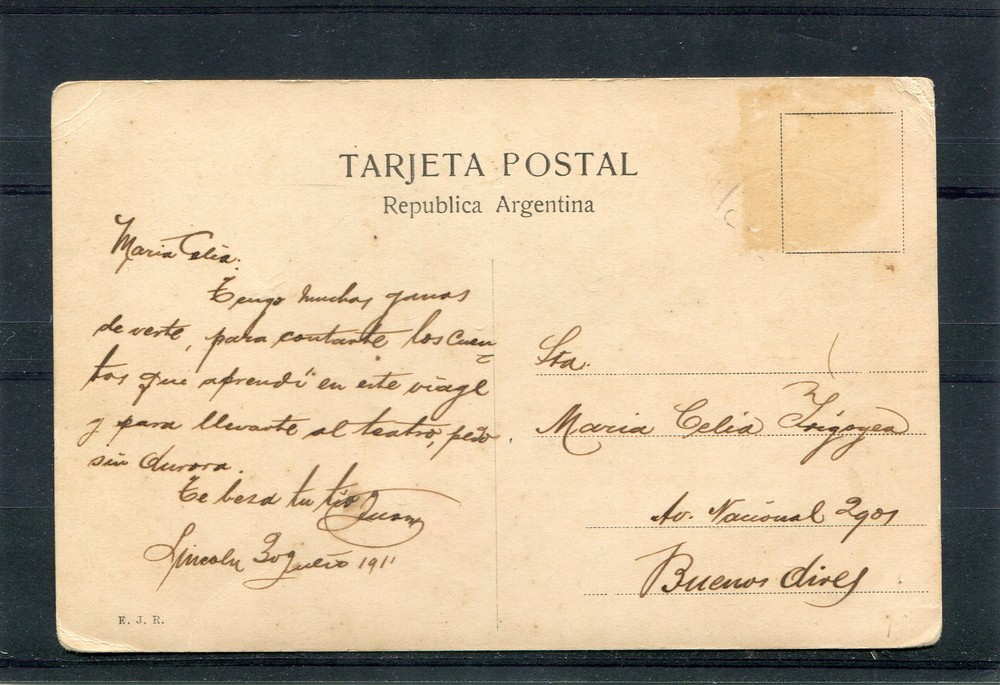 TARJETA POSTAL
Republica Argentina
Maria Celia:
Tengo muchas ganas
de verte, para contarte los cuen-
tos que aprendi en este viage
y para llevarte al teatro, pero
sin Aurora.
Te besa tu tio Juan
Lincoln 30 Julio 1911
E. J. R.
Sta.
Maria Celia Irigoyen
Av. Nacional 2901
Buenos Aires